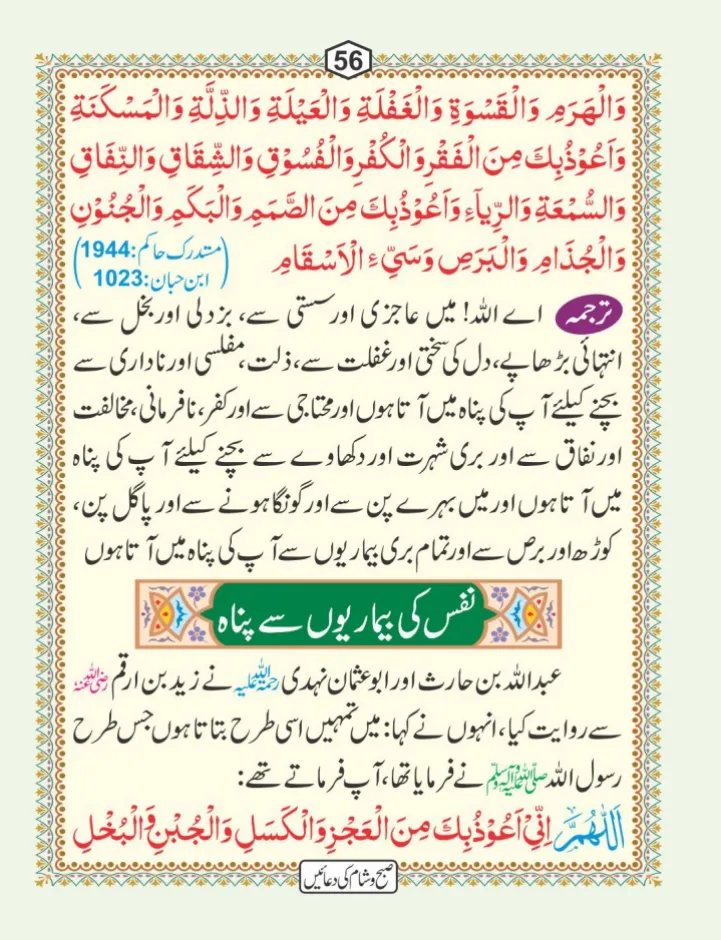 56
وَالْهَرَمِ وَالْقَسْوَةِ وَالْغَفْلَةِ وَالْعَيْلَةِ وَالذِّلَّةِ وَالْمَسْكَنَةِ
وَاَعُوْذُبِكَ مِنَ الْفَقْرِ وَالْكُفْرِ وَالْفُسُوْقِ وَالشِّقَاقِ وَالنِّفَاقِ
وَالسُّمْعَةِ وَالرِّيآءِ وَاَعُوْذُبِكَ مِنَ الصَّمَمِ وَالْبَكَمِ وَالْجُنُوْنِ
وَالْجُذَامِ وَالْبَرَصِ وَسَيِّءِ الْاَسْقَامِ (مستدرک حاکم:1944 ابن حبان:1023)
ترجمہ اے اللہ! میں عاجزی اور سستی سے، بزدلی اور بخل سے،
انتہائی بڑھاپے، دل کی سختی اور غفلت سے، ذلت، مفلسی اور ناداری سے
بچنے کیلئے آپ کی پناہ میں آتا ہوں اور محتاجی سے اور کفر، نافرمانی، مخالفت
اور نفاق سے اور بری شہرت اور دکھاوے سے بچنے کیلئے آپ کی پناہ
میں آتا ہوں اور میں بہرے پن سے اور گونگا ہونے سے اور پاگل پن،
کوڑھ اور برص سے اور تمام بری بیماریوں سے آپ کی پناہ میں آتا ہوں
نفس کی بیماریوں سے پناہ
عبداللہ بن حارث اور ابوعثمان نہدی رحمۃ اللہ علیہ نے زید بن ارقم رضی اللہ عنہ
سے روایت کیا، انہوں نے کہا: میں تمہیں اسی طرح بتاتا ہوں جس طرح
رسول اللہ صلی اللہ علیہ وسلم نے فرمایا تھا، آپ فرماتے تھے:
اَللّٰهُمَّ اِنِّيْ اَعُوْذُبِكَ مِنَ الْعَجْزِ وَالْكَسَلِ وَالْجُبْنِ وَالْبُخْلِ
صبح و شام کی دعائیں